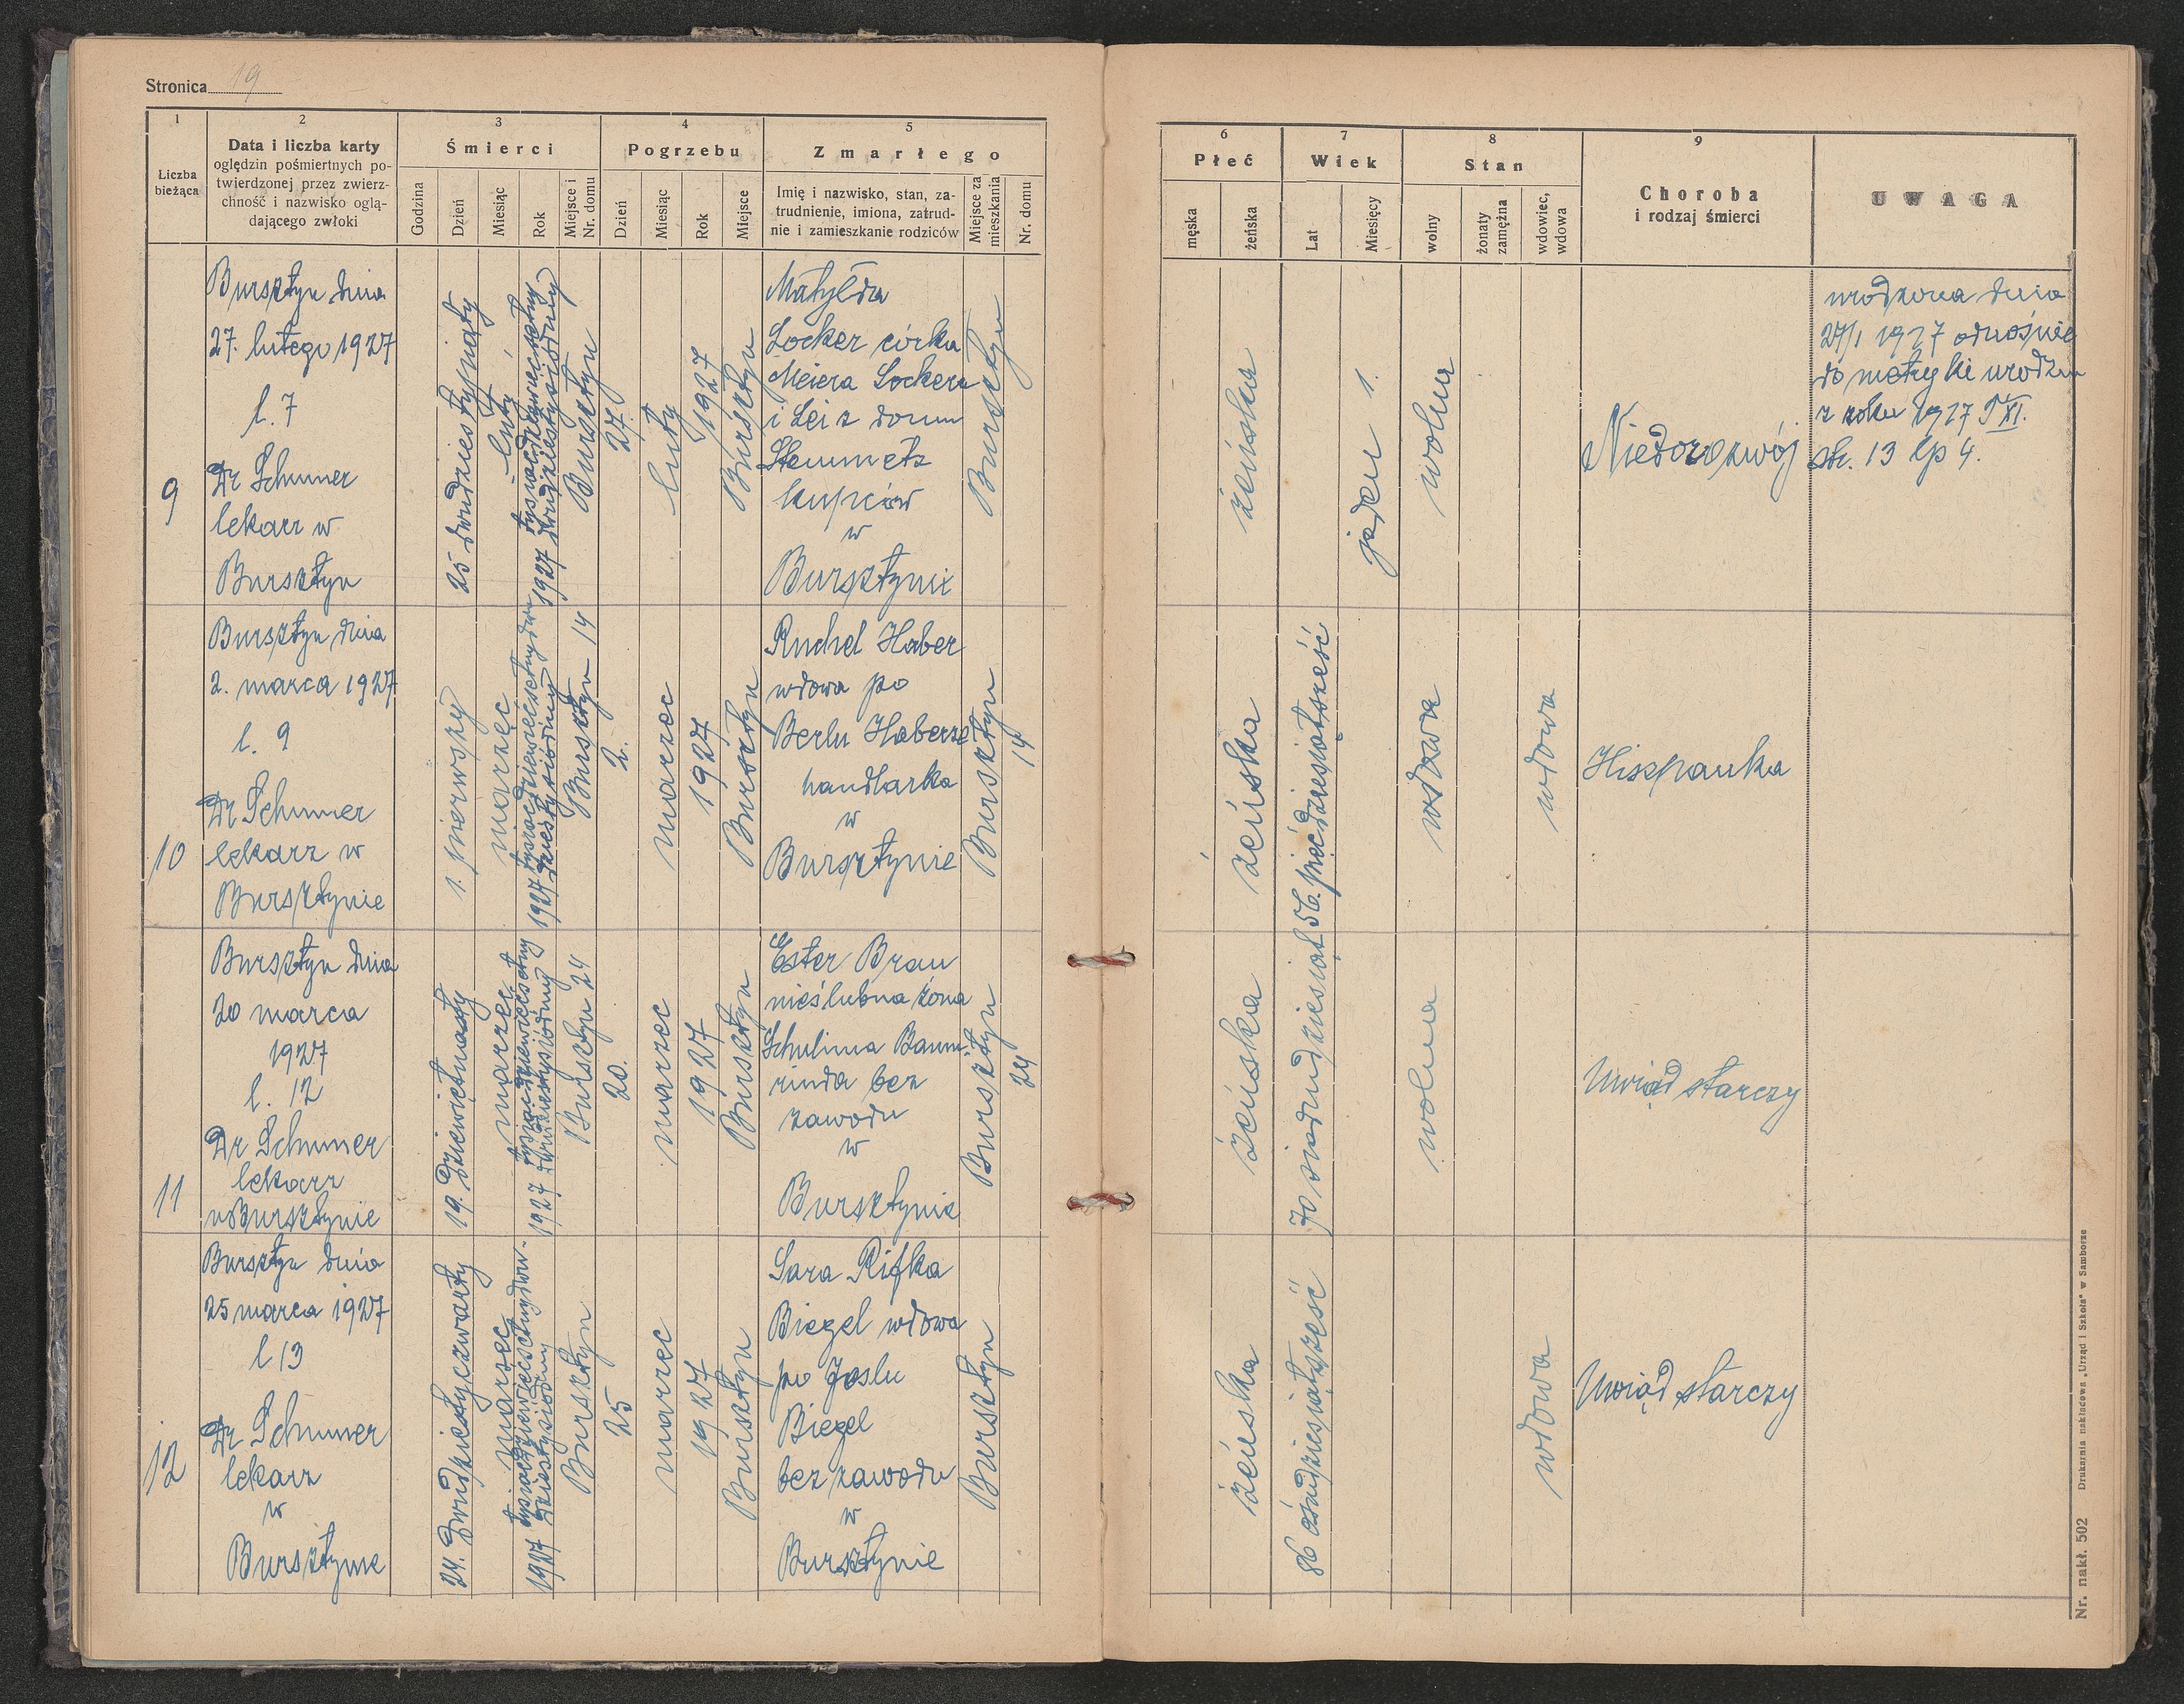 Stronica 19
1
2
3
4
5
Liczba
bieżąca
Data i liczba karty
oględzin pośmiertnych po-
twierdzonej przez zwierz-
chność i nazwisko oglą-
dającego zwłoki
Śmierci
Godzina
Dzień
Miesiąc
Rok
Miejsce i
Nr. domu
Pogrzebu
Dzień
Miesiąc
Rok
Miejsce
Zmarłego
Imię i nazwisko, stan, za-
trudnienie, imiona, zatrud-
nie i zamieszkanie rodziców
Miejsce za
mieszkania
Nr. domu
6
7
8
9
Płeć
męska
żeńska
Wiek
Lat
Miesięcy
Stan
wolny
żonaty
zamężna
wdowiec,
wdowa
Choroba
i rodzaj śmierci
UWAGA
9
Bursztyn dnia
27. lutego 1927
l. 7
Dr Schumer
lekarz w
Bursztyn
25 dwudziestypiąty
luty
1927 tysiącdziewięćsetny
dwudziestysiódmy
Bursztyn
27.
luty
1927
Bursztyn
Matylda
Locker córka
Meiera Lockera
i Lei z domu
Stemmetz
kupców
w
Bursztynie
Bursztyn
żeńska
jeden 1.
wolna
Niedorozwój
urodzona dnia
27/1 1927 odnośnie
do metryki urodzin
z roku 1927 T XI.
str. 13 lp 4.
10
Bursztyn dnia
2. marca 1927
l. 9
Dr Schumer
lekarz w
Bursztynie
1. pierwszy
marzec
1927 tysiącdziewięćsetnydwu
dziestysiódmy
Bursztyn 14
2.
marzec
1927
Bursztyn
Ruchel Haber
wdowa po
Berlu Haberze
handlarka
w
Bursztynie
Bursztyn
14
żeńska
56. pięćdziesiątsześć
wdowa
wdowa
Hiszpanka
11
Bursztyn dnia
20 marca
1927
l. 12
Dr Schumer
lekarz
w Bursztynie
19. dziewiętnasty
marzec
1927 tysiącdziewięćsetny
dwudziestysiódmy
Bursztyn 24
20.
marzec
1927
Bursztyn
Ester Brau
nieślubna żona
Schulima Baum-
rinda bez
zawodu
w
Bursztynie
Bursztyn
24
żeńska
70 siedmdziesiąt
wolna
Uwiąd starczy
12
Bursztyn dnia
25 marca 1927
l 13
Dr Schumer
lekarz
w
Bursztynie
24. dwudziestyczwarty
marzec
1927 tysiącdziewięćsetnydwu-
dziestysiódmy
Bursztyn
25
marzec
1927
Bursztyn
Sara Rifka
Biegel wdowa
po Joslu
Biegel
bez zawodu
w
Bursztynie
Bursztyn
żeńska
86 ośmdziesiątsześć
wdowa
Uwiąd starczy
Nr. nakł. 502 Drukarnia nakładowa „Urząd i Szkoła" w Samborze